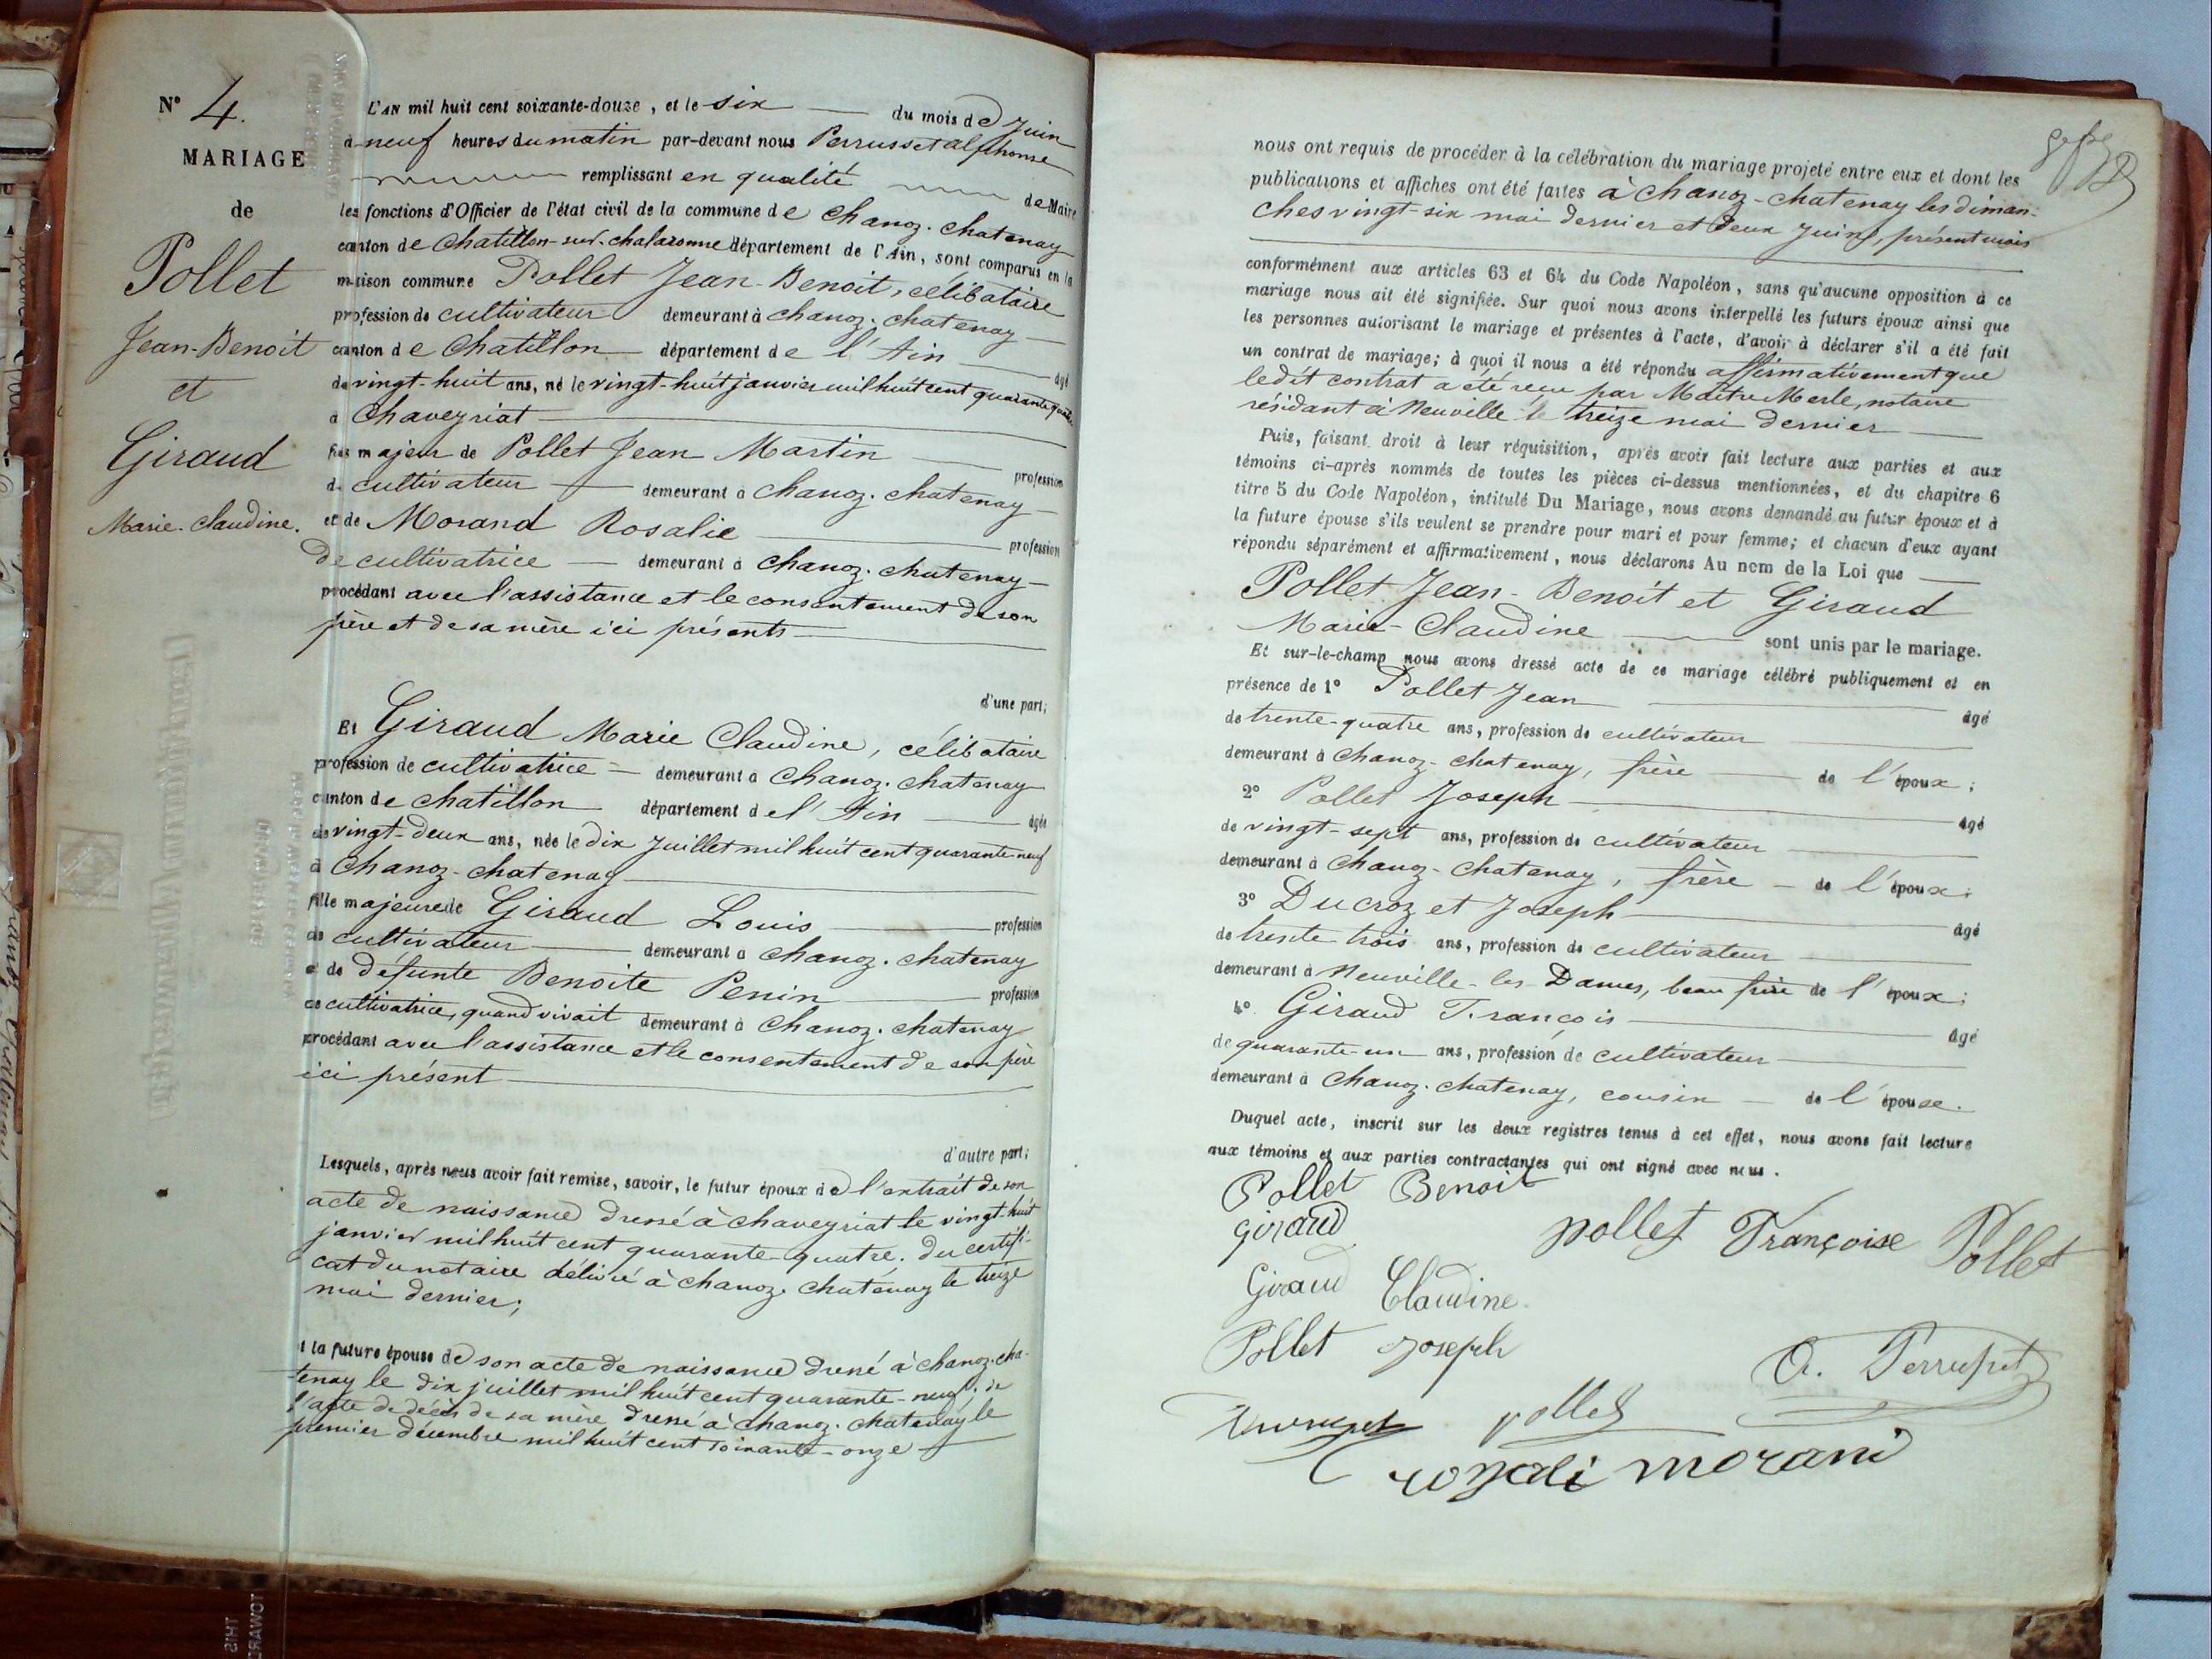 N° 4.
MARIAGE
de
Pollet
Jean-Benoit
et
Giraud
Marie-Claudine.
L'AN mil huit cent soixante-douze, et le six du mois de Juin
à neuf heures du matin par-devant nous Perrusset alphonse
remplissant en qualité de Maire
les fonctions d'Officier de l'état civil de la commune de Chanoz-Chatenay
canton de Chatillon-sur-chalaronne département de l'Ain, sont comparus en la
maison commune Pollet Jean-Benoit, célibataire
profession de cultivateur demeurant à Chanoz-chatenay
canton de Chatillon département de l'Ain âgé
de vingt-huit ans, né le vingt-huit janvier mil huit cent quarante quatre
à Chaveyriat
fils majeur de Pollet Jean Martin profession
de cultivateur demeurant à Chanoz-chatenay
et de Morand Rosalie profession
de cultivatrice demeurant à Chanoz-chatenay
procédant avec l'assistance et le consentement de son
père et de sa mère ici présents
d'une part;
Et Giraud Marie Claudine, célibataire
profession de cultivatrice demeurant à Chanoz-chatenay
canton de chatillon département de l'Ain âgée
de vingt-deux ans, née le dix Juillet mil huit cent quarante neuf
à Chanoz-chatenay
fille majeure de Giraud Louis profession
de cultivateur demeurant à Chanoz-chatenay
et de défunte Benoite Penin profession
de cultivatrice, quand vivait demeurant à Chanoz-chatenay
procédant avec l'assistance et le consentement de son père
ici présent
d'autre part;
Lesquels, après nous avoir fait remise, savoir, le futur époux de l'extrait de son
acte de naissance dressé à chaveyriat le vingt-huit
janvier mil huit cent quarante-quatre. du certifi-
cat du notaire délivré à chanoz-chatenay le treize
mai dernier;
et la future épouse de son acte de naissance dressé à chanoz-cha-
tenay le dix juillet mil huit cent quarante-neuf; de
l'acte de décès de sa mère dressé à chanoz-chatenay le
premier décembre mil huit cent soixante-onze
nous ont requis de procéder à la célébration du mariage projeté entre eux et dont les
publications et affiches ont été faites à Chanoz-chatenay les diman-
ches vingt-six mai dernier et deux Juin, présent mois
conformément aux articles 63 et 64 du Code Napoléon, sans qu'aucune opposition à ce
mariage nous ait été signifiée. Sur quoi nous avons interpellé les futurs époux ainsi que
les personnes autorisant le mariage et présentes à l'acte, d'avoir à déclarer s'il a été fait
un contrat de mariage; à quoi il nous a été répondu affirmativement que
ledit contrat a été reçu par Maître Merle, notaire
résidant à Neuville le treize mai dernier
Puis, faisant droit à leur réquisition, après avoir fait lecture aux parties et aux
témoins ci-après nommés de toutes les pièces ci-dessus mentionnées, et du chapitre 6
titre 5 du Code Napoléon, intitulé Du Mariage, nous avons demandé au futur époux et à
la future épouse s'ils veulent se prendre pour mari et pour femme; et chacun d'eux ayant
répondu séparément et affirmativement, nous déclarons Au nom de la Loi que
Pollet Jean-Benoit et Giraud
Marie-Claudine sont unis par le mariage.
Et sur-le-champ nous avons dressé acte de ce mariage célébré publiquement et en
présence de 1° Pollet Jean âgé
de trente-quatre ans, profession de cultivateur
demeurant à Chanoz-chatenay, frère de l'époux;
2° Pollet Joseph âgé
de vingt-sept ans, profession de cultivateur
demeurant à Chanoz-chatenay, frère de l'époux;
3° Ducrozet Joseph âgé
de trente trois ans, profession de cultivateur
demeurant à Neuville-les-Dames, beau frère de l'époux;
4° Giraud François âgé
de quarante-un ans, profession de cultivateur
demeurant à Chanoz-chatenay, cousin de l'épouse.
Duquel acte, inscrit sur les deux registres tenus à cet effet, nous avons fait lecture
aux témoins et aux parties contractantes qui ont signé avec nous.
Pollet Benoit
giraud
pollet Françoise Pollet
Giraud Claudine
Pollet Joseph
A. Perrusset
pollet
rozali morand